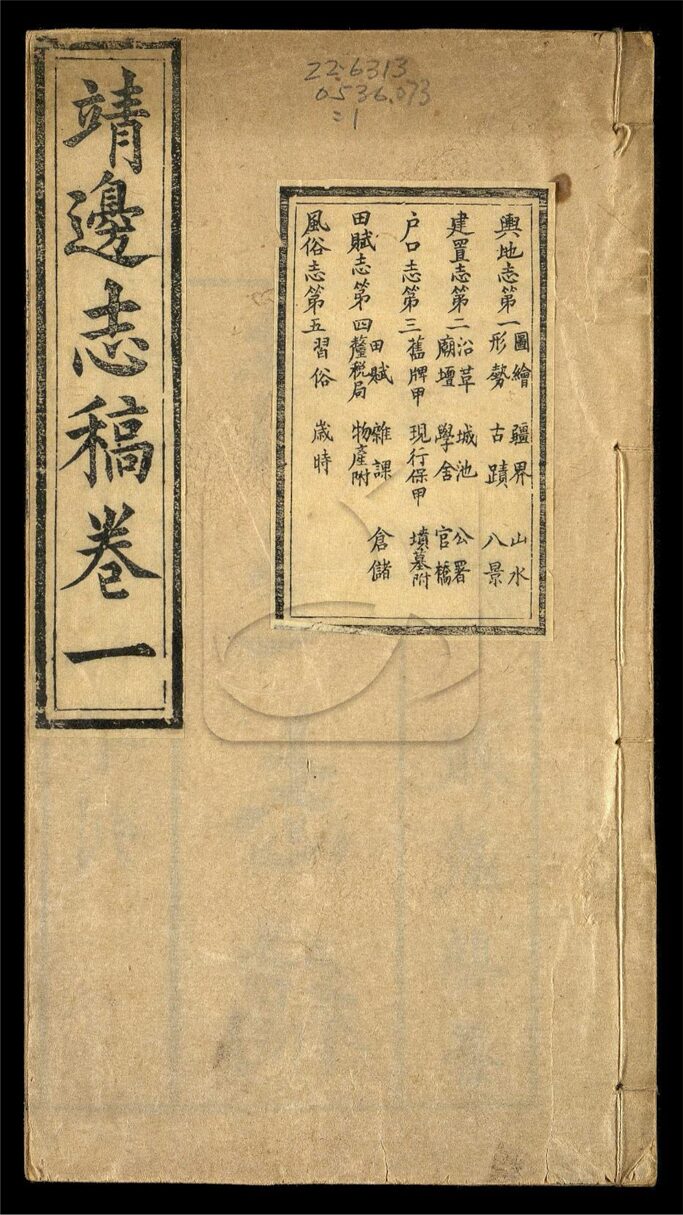 22-6313
0536.073
=1
輿地志第一 圖繪 疆界 山水
形勢 古蹟 八景
建置志第二 沿革 城池 公署
廟壇 學舍 官橋
户口志第三 舊牌甲 現行保甲 墳墓附
田賦志第四 田賦 雜課 倉儲
釐稅局 物產附
風俗志第五 習俗 歲時
靖邊志稿卷一